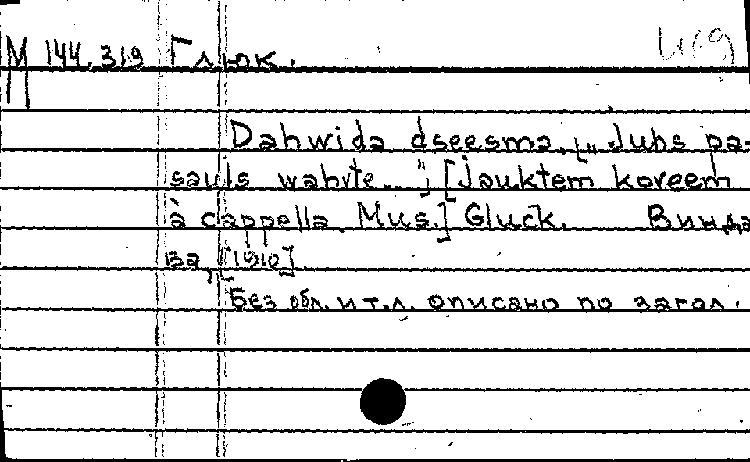 М 144.319 Глюк.
Dahwida dseesma. ["Juhs pa-
sauls wahrte..."; [Jauktem koreem
à cappella. Mus.] Gluck. Винда
ва, [1910]
Без обл. и т.л. описано по загол.